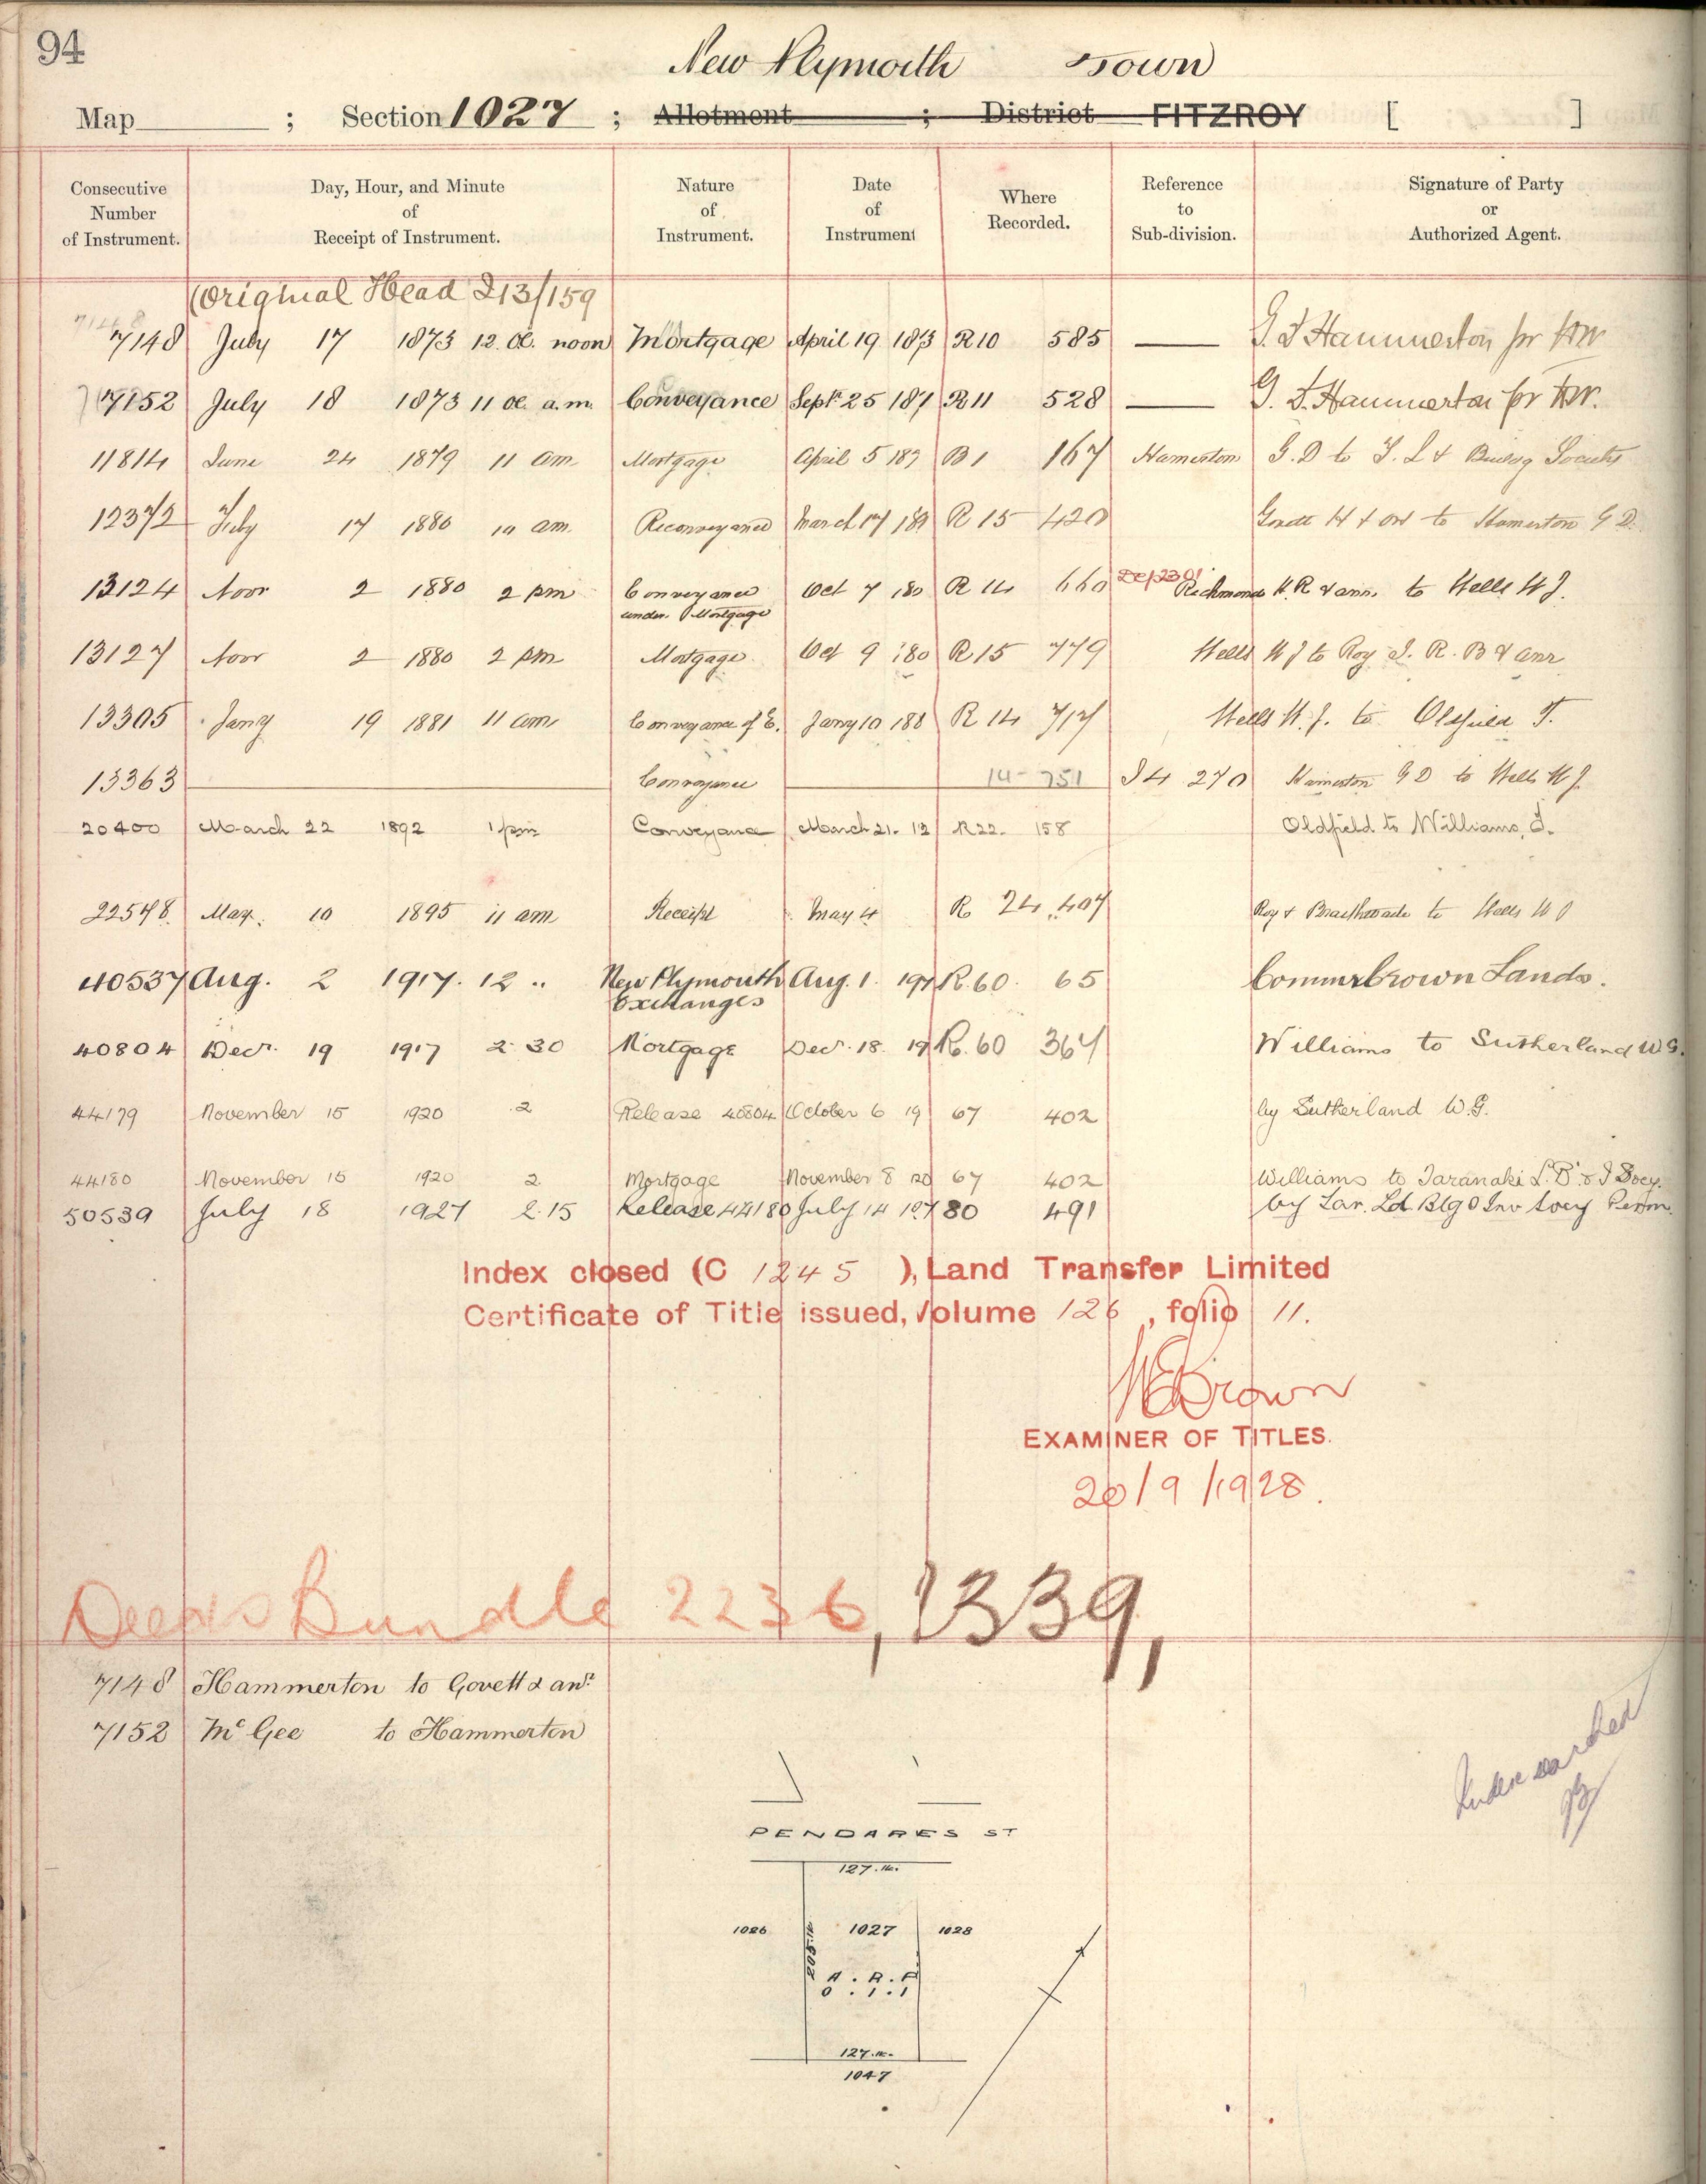 94
New Plymouth Town
Map ; Section 1027 ; Allotment ; District FITZROY [ ]
Consecutive Number of Instrument. Day, Hour, and Minute of Receipt of Instrument. Nature of Instrument. Date of Instrument Where Recorded. Reference to Sub-division. Signature of Party or Authorized Agent.
(Original Head I13/159
7148 July 17 1873 12 Oc. noon Mortgage April 19 1873 R10 585 G. D Hammerton for
7152 July 18 1873 11 Oc. a.m. Conveyance Sept. 25 187 R11 528 G. D. Hammerton for
11814 June 24 1879 11 am Mortgage April 5 187 B1 167 Hamerton G. D to T. L & Buildg Society
12372 July 17 1880 10 am. Reconveyance March 17 18 R 15 420 Govett H & anr to Hamerton G D.
13124 Novr 2 1880 2 pm Conveyance under Mortgage Oct 7 180 R 14 660 Dep 2301 Richmond H. R & anr. to Wells W J.
13127 Novr 2 1880 2 pm Mortgage Oct 9 180 R15 779 Wells W J to Roy J. R. B & anr
13305 Jany 19 1881 11 am Conveyance of E. Jany 10 188 R 14 717 Wells W. J. to Oldfield T.
13363 Conveyance 14 - 751 I4 270 Hamerton G D to Wells W J.
20400 March 22 1892 1 pm Conveyance March 21. 12 R22. 158 Oldfield to Williams, J.
22548 May. 10 1895 11 am Receipt May 4 R 24.407 Roy & Braithwaite to Wells W J
40537 Aug. 2 1917. 12 .. New Plymouth Exchanges Aug. 1. 197 R.60. 65 Commr Crown Lands.
40804 Decr. 19 1917 2.30 Mortgage Decr. 18. 19 R.60 364 Williams to Sutherland W.G.
44179 November 15 1920 .2 Release 40804 October 6 19 67 402 by Sutherland W.G.
44180 November 15 1920 2. Mortgage November 8 20 67 402 Williams to Taranaki L. B. & I Socy.
50539 July 18 1927 2.15 Release 44180 July 14 1927 80 491 by Tar. Ld. Bldg & Inv Socy Perm.
Index closed (C 1245 ), Land Transfer Limited
Certificate of Title issued, Volume 126, folio 11.
Brown
EXAMINER OF TITLES.
20/9/1928.
Deeds Bundle 2236, 1339,
7148 Hammerton to Govett & anr
7152 McGee to Hammerton
Index searched
PENDARES ST
127.lk.
1026 1027 1028
205.lk
A. R. P
0 . 1 . 1
127.lk.
1047